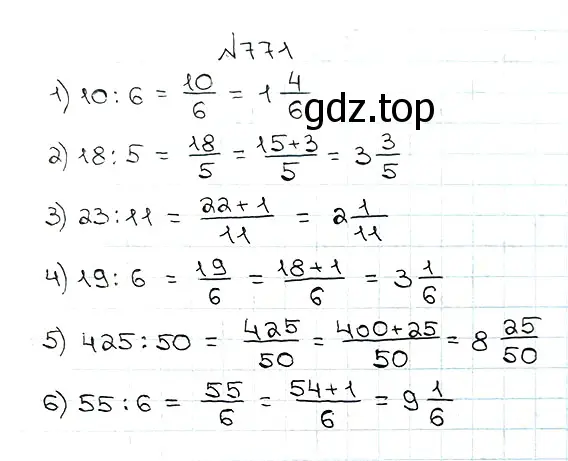 №771
1) 10 : 6 = 10/6 = 1 4/6
gdz.top
2) 18 : 5 = 18/5 = 15+3/5 = 3 3/5
3) 23 : 11 = 22+1/11 = 2 1/11
4) 19 : 6 = 19/6 = 18+1/6 = 3 1/6
5) 425 : 50 = 425/50 = 400+25/50 = 8 25/50
6) 55 : 6 = 55/6 = 54+1/6 = 9 1/6